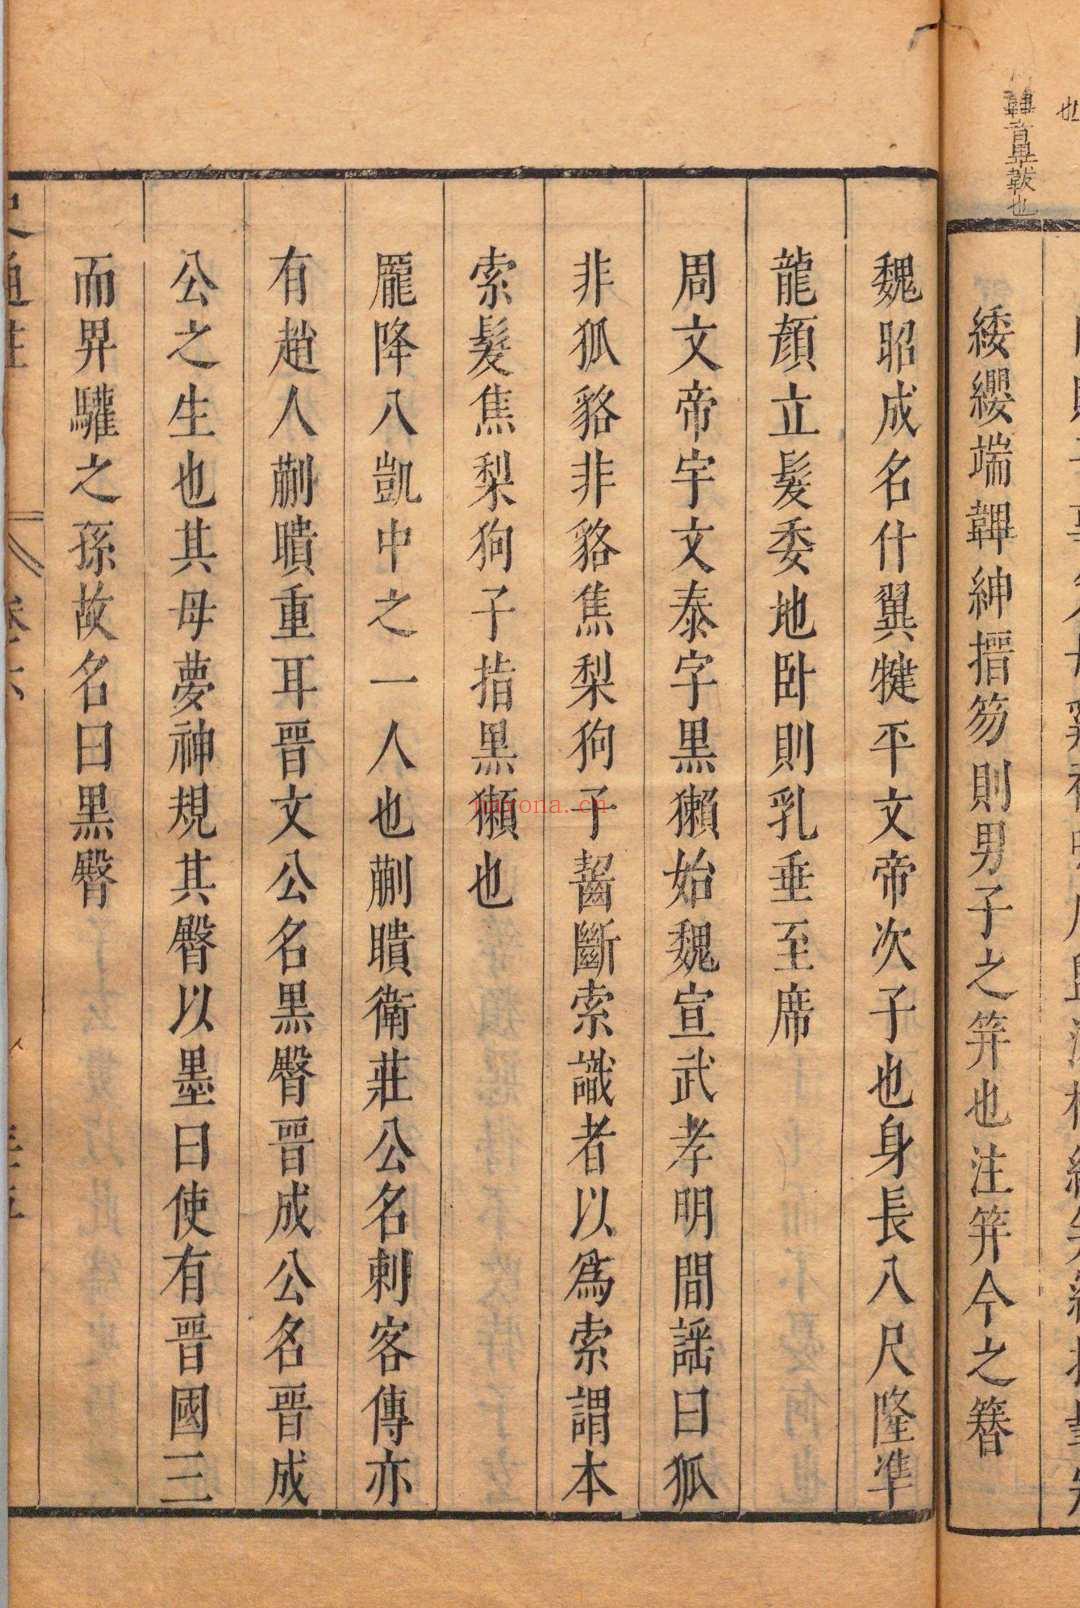 也
韠音畢韍也
綏纓端韠紳搢笏則男子之笄也注笄今之簪
魏昭成名什翼犍平文帝次子也身長八尺隆準
龍顔立髮委地卧則乳垂至席
周文帝宇文泰字黒獺始魏宣武孝明間謡曰狐
非狐貉非貉焦梨狗子齧斷索識者以爲索謂本
索髮焦梨狗子指黒獺也
龎降八凱中之一人也蒯聵衛莊公名刺客傳亦
有趙人蒯聵重耳晉文公名黒臀晉成公名晉成
公之生也其母夢神規其臀以墨曰使有晉國三
而畀驩之孫故名曰黒臀
nayona.cn